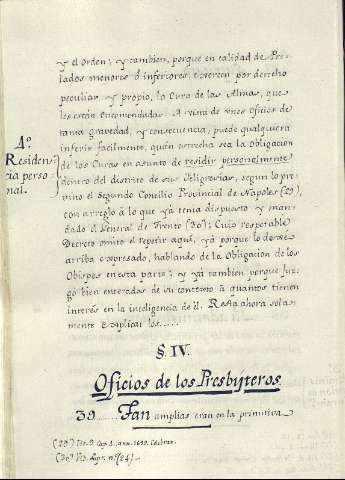 y el orden; y tambien, porque en calidad de Pre-
lados menores ó inferiores exercen por derecho
peculiar, y propio, la Cura de las Almas, que
les están encomendadas. A vista de unos Oficios de
tanta gravedad, y consecuencia, puede qualquiera
inferir facilmente, quán estrecha sea la obligacion
de los Curas en asunto de residir personalmente
dentro del distrito de sus Feligresias, segun lo pre-
vino el Segundo Concilio Provincial de Napoles (29),
con arreglo à lo que yá tenia dispuesto y man-
dado el General de Trento (30); Cuio respetable
Decreto omito el repetir aquí, yá porque lo dexé
arriba expresado, hablando de la Obligacion de los
Obispos en esta parte; y yá tambien porque juz-
gó bien enterados de su contexto à quantos tienen
interés en la inteligencia de él. Resta ahora sola-
mente explicar los.....
4º.
Residen-
cia perso-
nal.
§. IV.
Oficios de los Presbyteros.
39. Tan amplias eran en la primitiva
(29) Tit. 9. Cap. 1. ann.
(30) Vid. supr. nº. (24).